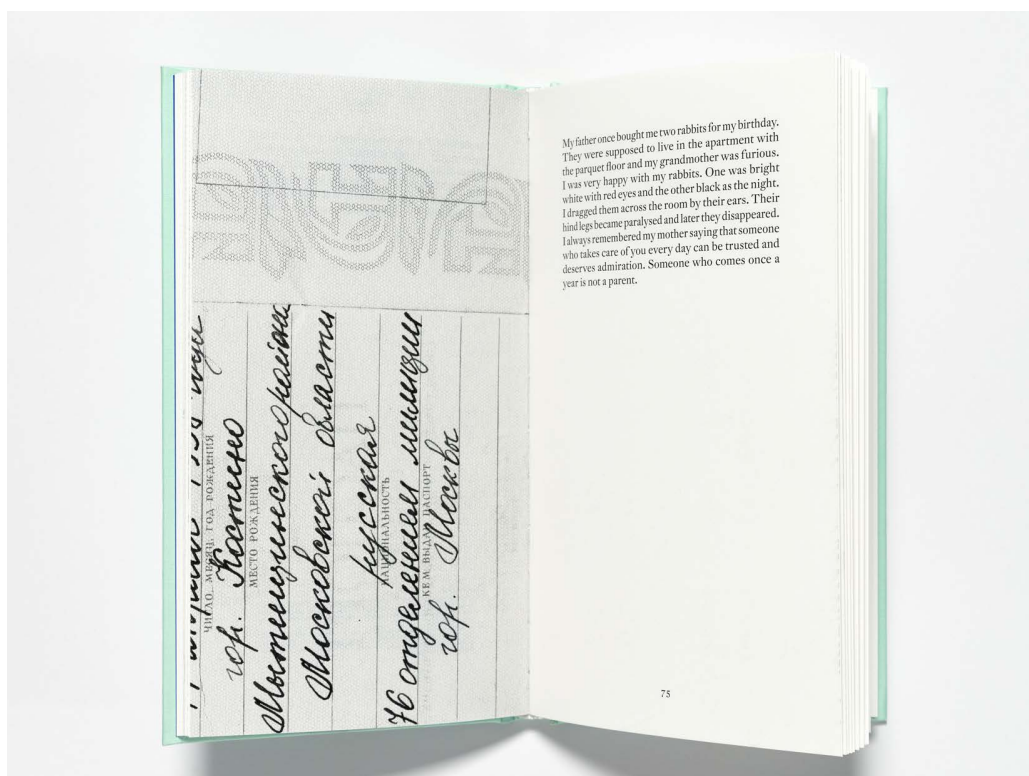 гор. Костино
ЧИСЛО, МЕСЯЦ, ГОД РОЖДЕНИЯ
Мытищинского района
МЕСТО РОЖДЕНИЯ
Московской области
русская
НАЦИОНАЛЬНОСТЬ
76 отделением милиции
КЕМ ВЫДАН ПАСПОРТ
гор. Москвы
My father once bought me two rabbits for my birthday.
They were supposed to live in the apartment with
the parquet floor and my grandmother was furious.
I was very happy with my rabbits. One was bright
white with red eyes and the other black as the night.
I dragged them across the room by their ears. Their
hind legs became paralysed and later they disappeared.
I always remembered my mother saying that someone
who takes care of you every day can be trusted and
deserves admiration. Someone who comes once a
year is not a parent.
75